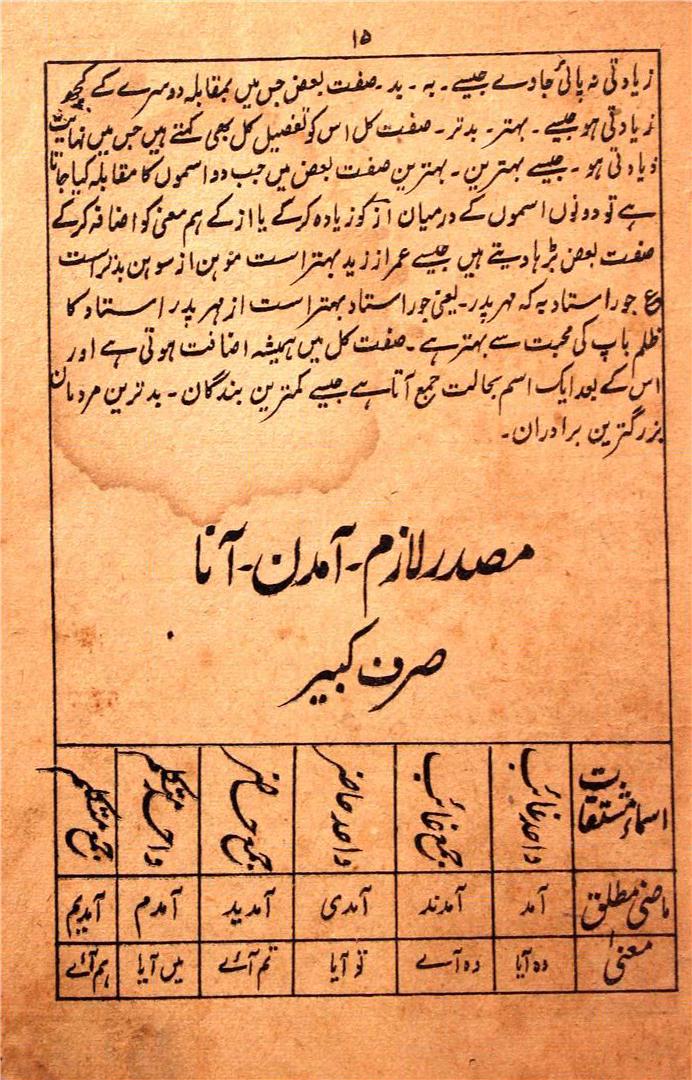 ۱۵
زیادتی نہ پائی جاوے جیسے۔ بہ۔ بد۔ صفت بعض جس میں بمقابلہ دوسرے کے کچھ
زیادتی ہو جیسے۔ بہتر۔ بدتر۔ صفت کل اس کو تفصیل کل بھی کہتے ہیں جس میں نہایت
زیادتی ہو۔ جیسے بہترین۔ بہترین صفت بعض میں جب دو اسموں کا مقابلہ کیا جاتا
ہے تو دونوں اسموں کے درمیان از کو زیادہ کر کے یا از کے ہم معنی کو اضافہ کر کے
صفت بعض بڑہا دیتے ہیں جیسے عمر از زید بہتر است موہن از سوہن بدتر است
ع جور استاد بہ کہ مہر پدر۔ یعنی جور استاد بہتر است از مہر پدر استاد کا
ظلم باپ کی محبت سے بہتر ہے۔ صفت کل میں ہمیشہ اضافت ہوتی ہے اور
اس کے بعد ایک اسم بحالت جمع آتا ہے جیسے کمترین بندگان۔ بدترین مردمان
بزرگترین برادران۔
مصدر لازم۔ آمدن۔ آنا
صرف کبیر
اسماء مشتقات واحد غائب جمع غائب واحد حاضر جمع حاضر واحد متکلم جمع متکلم
ماضی مطلق آمد آمدند آمدی آمدید آمدم آمدیم
معنی وہ آیا وہ آے تو آیا تم آئے میں آیا ہم آئے